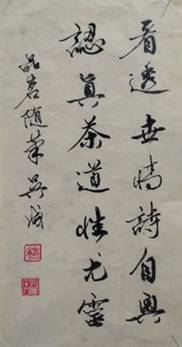 看透世情詩自興
認真茶道性尤靈
品茗隨筆 吳